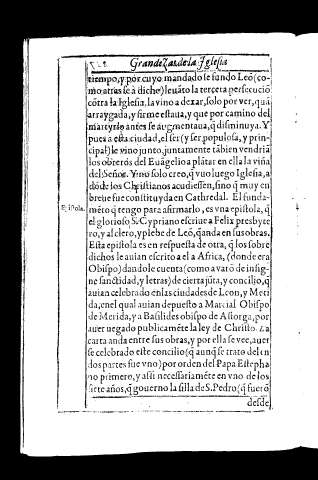 Grandezas de la Iglesia
tiempo, y por cuyo mandado se fundo Leõ (co-
mo atras se à dicho) leuãto la tercera persecucio
cõtra la Iglesia, la vino a dexar, solo por ver, quã
arraygada, y firme estaua, y que por camino del
martyrio antes se augmentaua, q̃ disminuya. Y
pues a esta ciudad, el ser (y ser populosa, y prin-
cipal) le vino junto, juntamente tãbien vendriã
los obreros del Euãgelio a plãtar en ella la viña
del Señor. Y no solo creo, q̃ vuo luego Iglesia, a
dõde los Christianos acudiessen, sino q̃ muy en
breue fue constituyda en Cathredal. El funda-
mẽto q̃ tengo para afirmarlo, es vna epistola, q̃
Epistola.
el glorioso S. Cypriano escriue a Felix presbyte
ro, y al clero, y plebe de Leõ, q̃ anda en sus obras.
Esta epistola es en respuesta de otra, q̃ los sobre
dichos le auian escrito a el a Africa, (donde era
Obispo) dandole cuenta (como a varõ de insig-
ne sanctidad, y letras) de cierta jũta, y concilio, q̃
auian celebrado en las ciudades de Leon, y Meri
da, en el qual auian depuesto a Marcial Obispo
de Merida, y a Basilides obispo de Astorga, por
auer negado publicamẽte la ley de Christo. La
carta anda entre sus obras, y por ella se vee, auer
se celebrado este concilio (q̃ aunq̃ se trato del en
dos partes fue vno) por orden del Papa Estepha
no primero, y assi necessariamẽte en vno de los
siete años, q̃ gouerno la silla de S. Pedro (q̃ fuerõ
desde